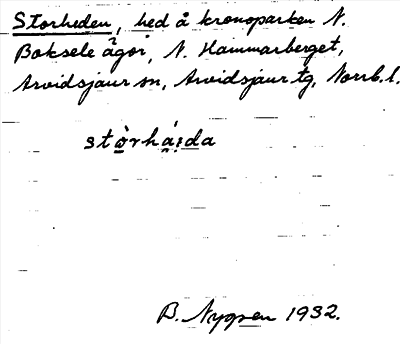 Storheden, hed å kronoparken N.
Boksele ägor, N. Hammarberget,
Arvidsjaur sn, Arvidsjaur tg, Norrb. l.
stòrhái̯da
B. Nygren 1932.